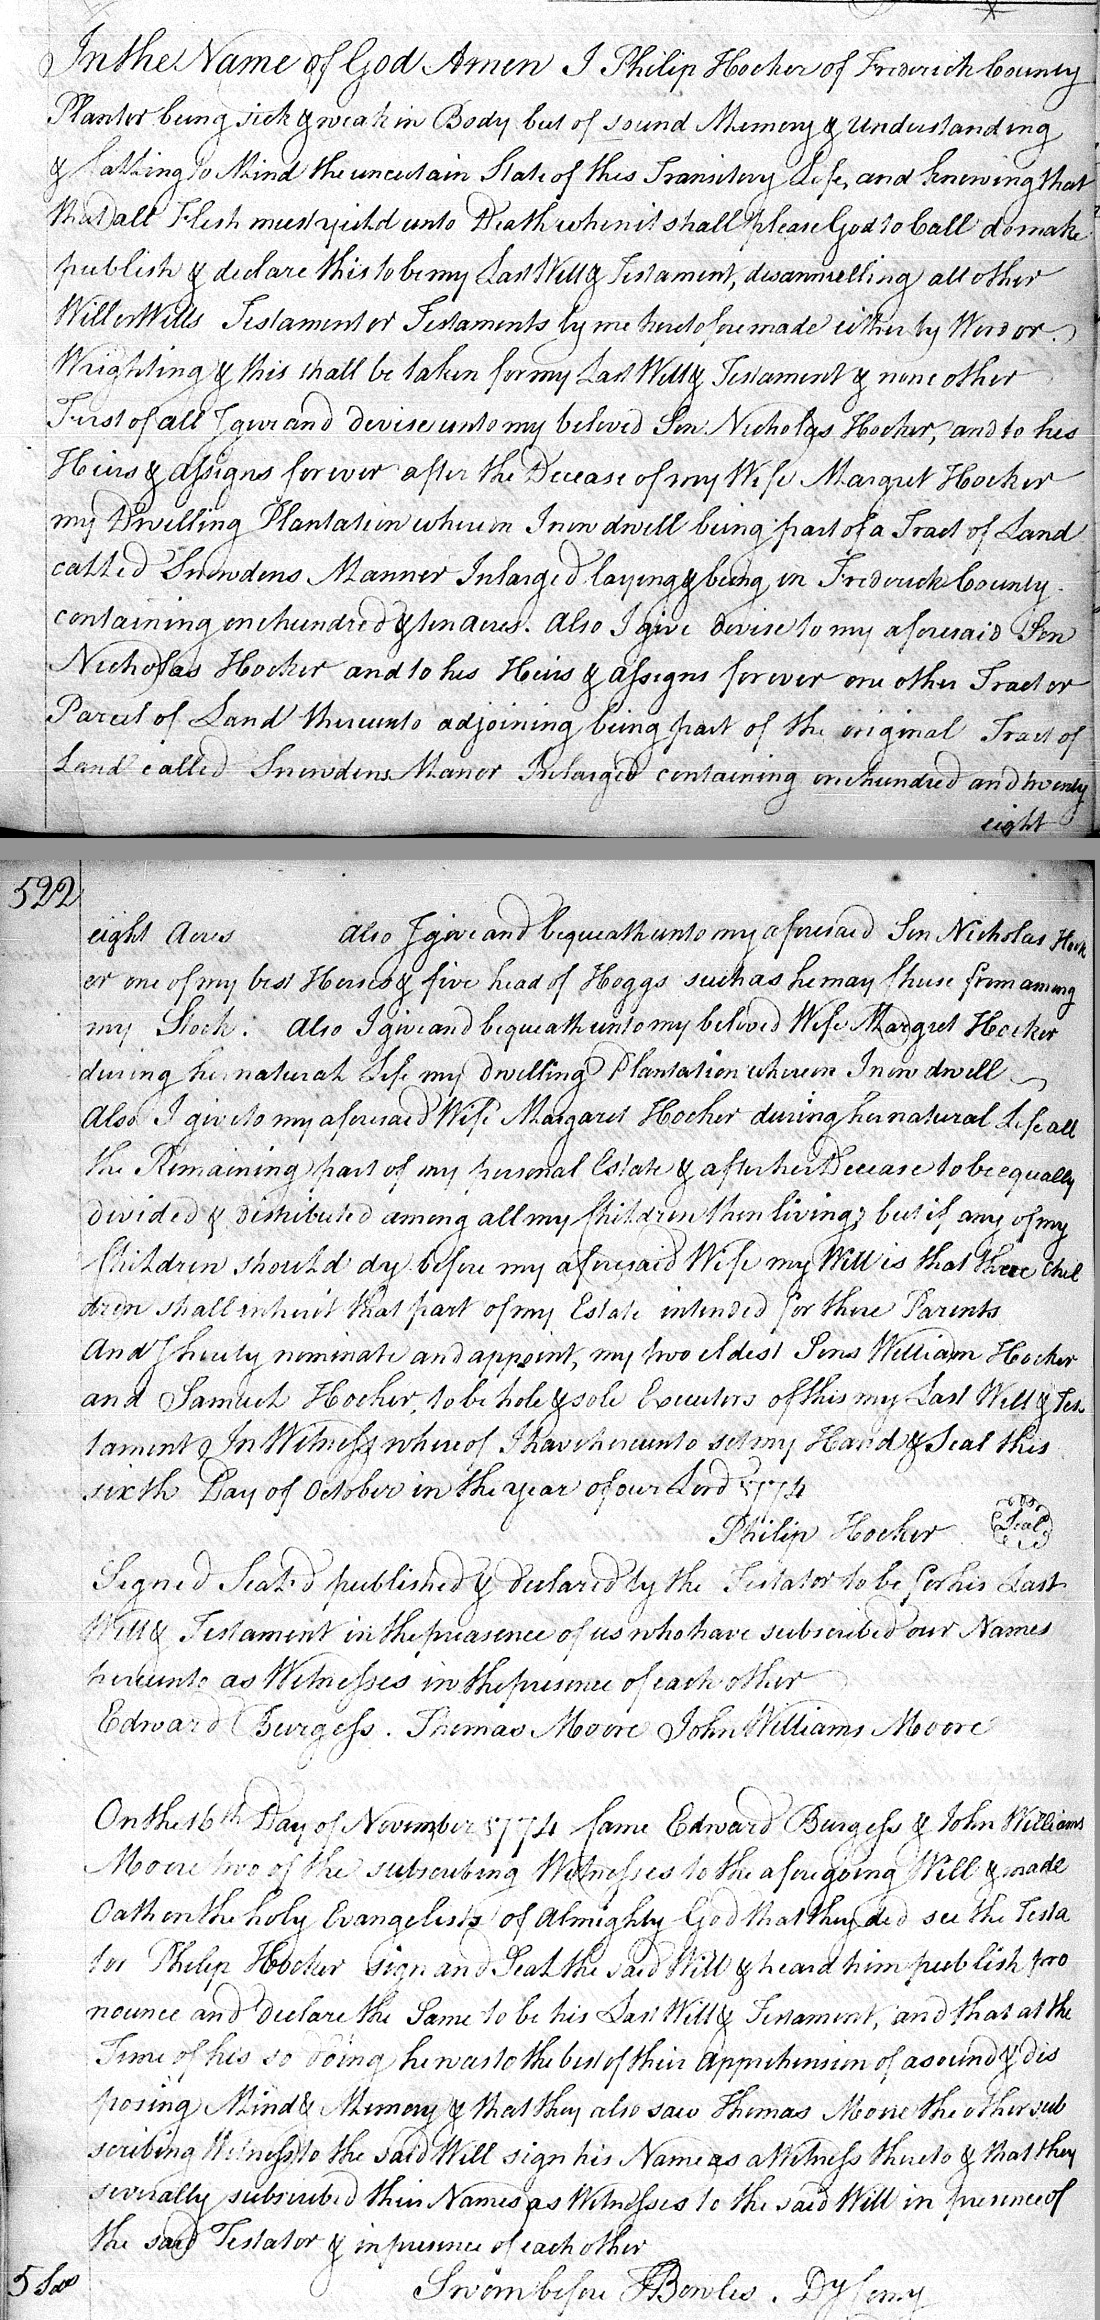 In the Name of God Amen I Philip Hocker of Frederick County
Planter being sick & weak in Body but of sound Memory & Understanding
& Calling to Mind the uncertain State of this Transitory Life, and knowing that
that all Flesh must yield unto Death when it shall please God to Call do make
publish & declare this to be my Last Will & Testament, desannulling all other
Will or Wills Testament or Testaments by me heretofore made either by Word or
Wrighting & this shall be taken for my Last Will & Testament & none other
First of all I give and devise unto my beloved Son Nicholas Hocker, and to his
Heirs & assigns forever after the Decease of my Wife Margret Hocker
my Dwelling Plantation wherein I now dwell being part of a Tract of Land
called Snowdens Manner Inlarged laying & being in Frederick County
containing one hundred & ten acres. Also I give devise to my aforesaid Son
Nicholas Hocker and to his Heirs & assigns forever one other Tract or
Parcel of Land thereunto adjoining being part of the original Tract of
Land called Snowdens Manor Inlarged containing one hundred and twenty
eight
522
eight Acres also I give and bequeath unto my aforesaid Son Nicholas Hock
er one of my best Horses & five head of Hoggs such as he may Chuse from among
my Stock. Also I give and bequeath unto my beloved Wife Margret Hocker
during her natural Life my dwelling Plantation wherein I now dwell
Also I give to my aforesaid Wife Margaret Hocker during her natural Life all
the Remaining part of my personal Estate & after her Decease to be equally
divided & distributed among all my Children then living; but if any of my
Children should dy before my aforesaid Wife my Will is that there Chil
dren shall inherit that part of my Estate intended for there Parents
And I hereby nominate and appoint, my two eldest Sons William Hocker
and Samuel Hocker, to be hole & sole Executors of this my Last Will & Tes
tament In Witness whereof I have hereunto set my Hand & Seal this
sixth Day of October in the year of our Lord 1774
Philip Hocker Seal
Signed Sealed published & declared by the Testator to be for his Last
Will & Testament in the preasence of us who have subscribed our Names
hereunto as Witnesses in the presence of each other
Edward Burgess. Thomas Moore John Williams Moore
On the 16th Day of November 1774 Came Edward Burgess & John Williams
Moore two of the subscribing Witnesses to the aforegoing Will & made
Oath on the holy Evangelists of Almighty God that they did see the Testa
tor Philip Hocker sign and Seal the said Will & heard him publish pro
nounce and declare the Same to be his Last Will & Testament, and that at the
Time of his so doing he was to the best of their Apprehension of a sound & dis
posing Mind & Memory & that they also saw Thomas Moore the other sub
scribing Witness to the said Will sign his Name as a Witness thereto & that they
severally subscribed their Names as Witnesses to the said Will in presence of
the said Testator & in presence of each other
Sworn before Bowles. Dy Comy